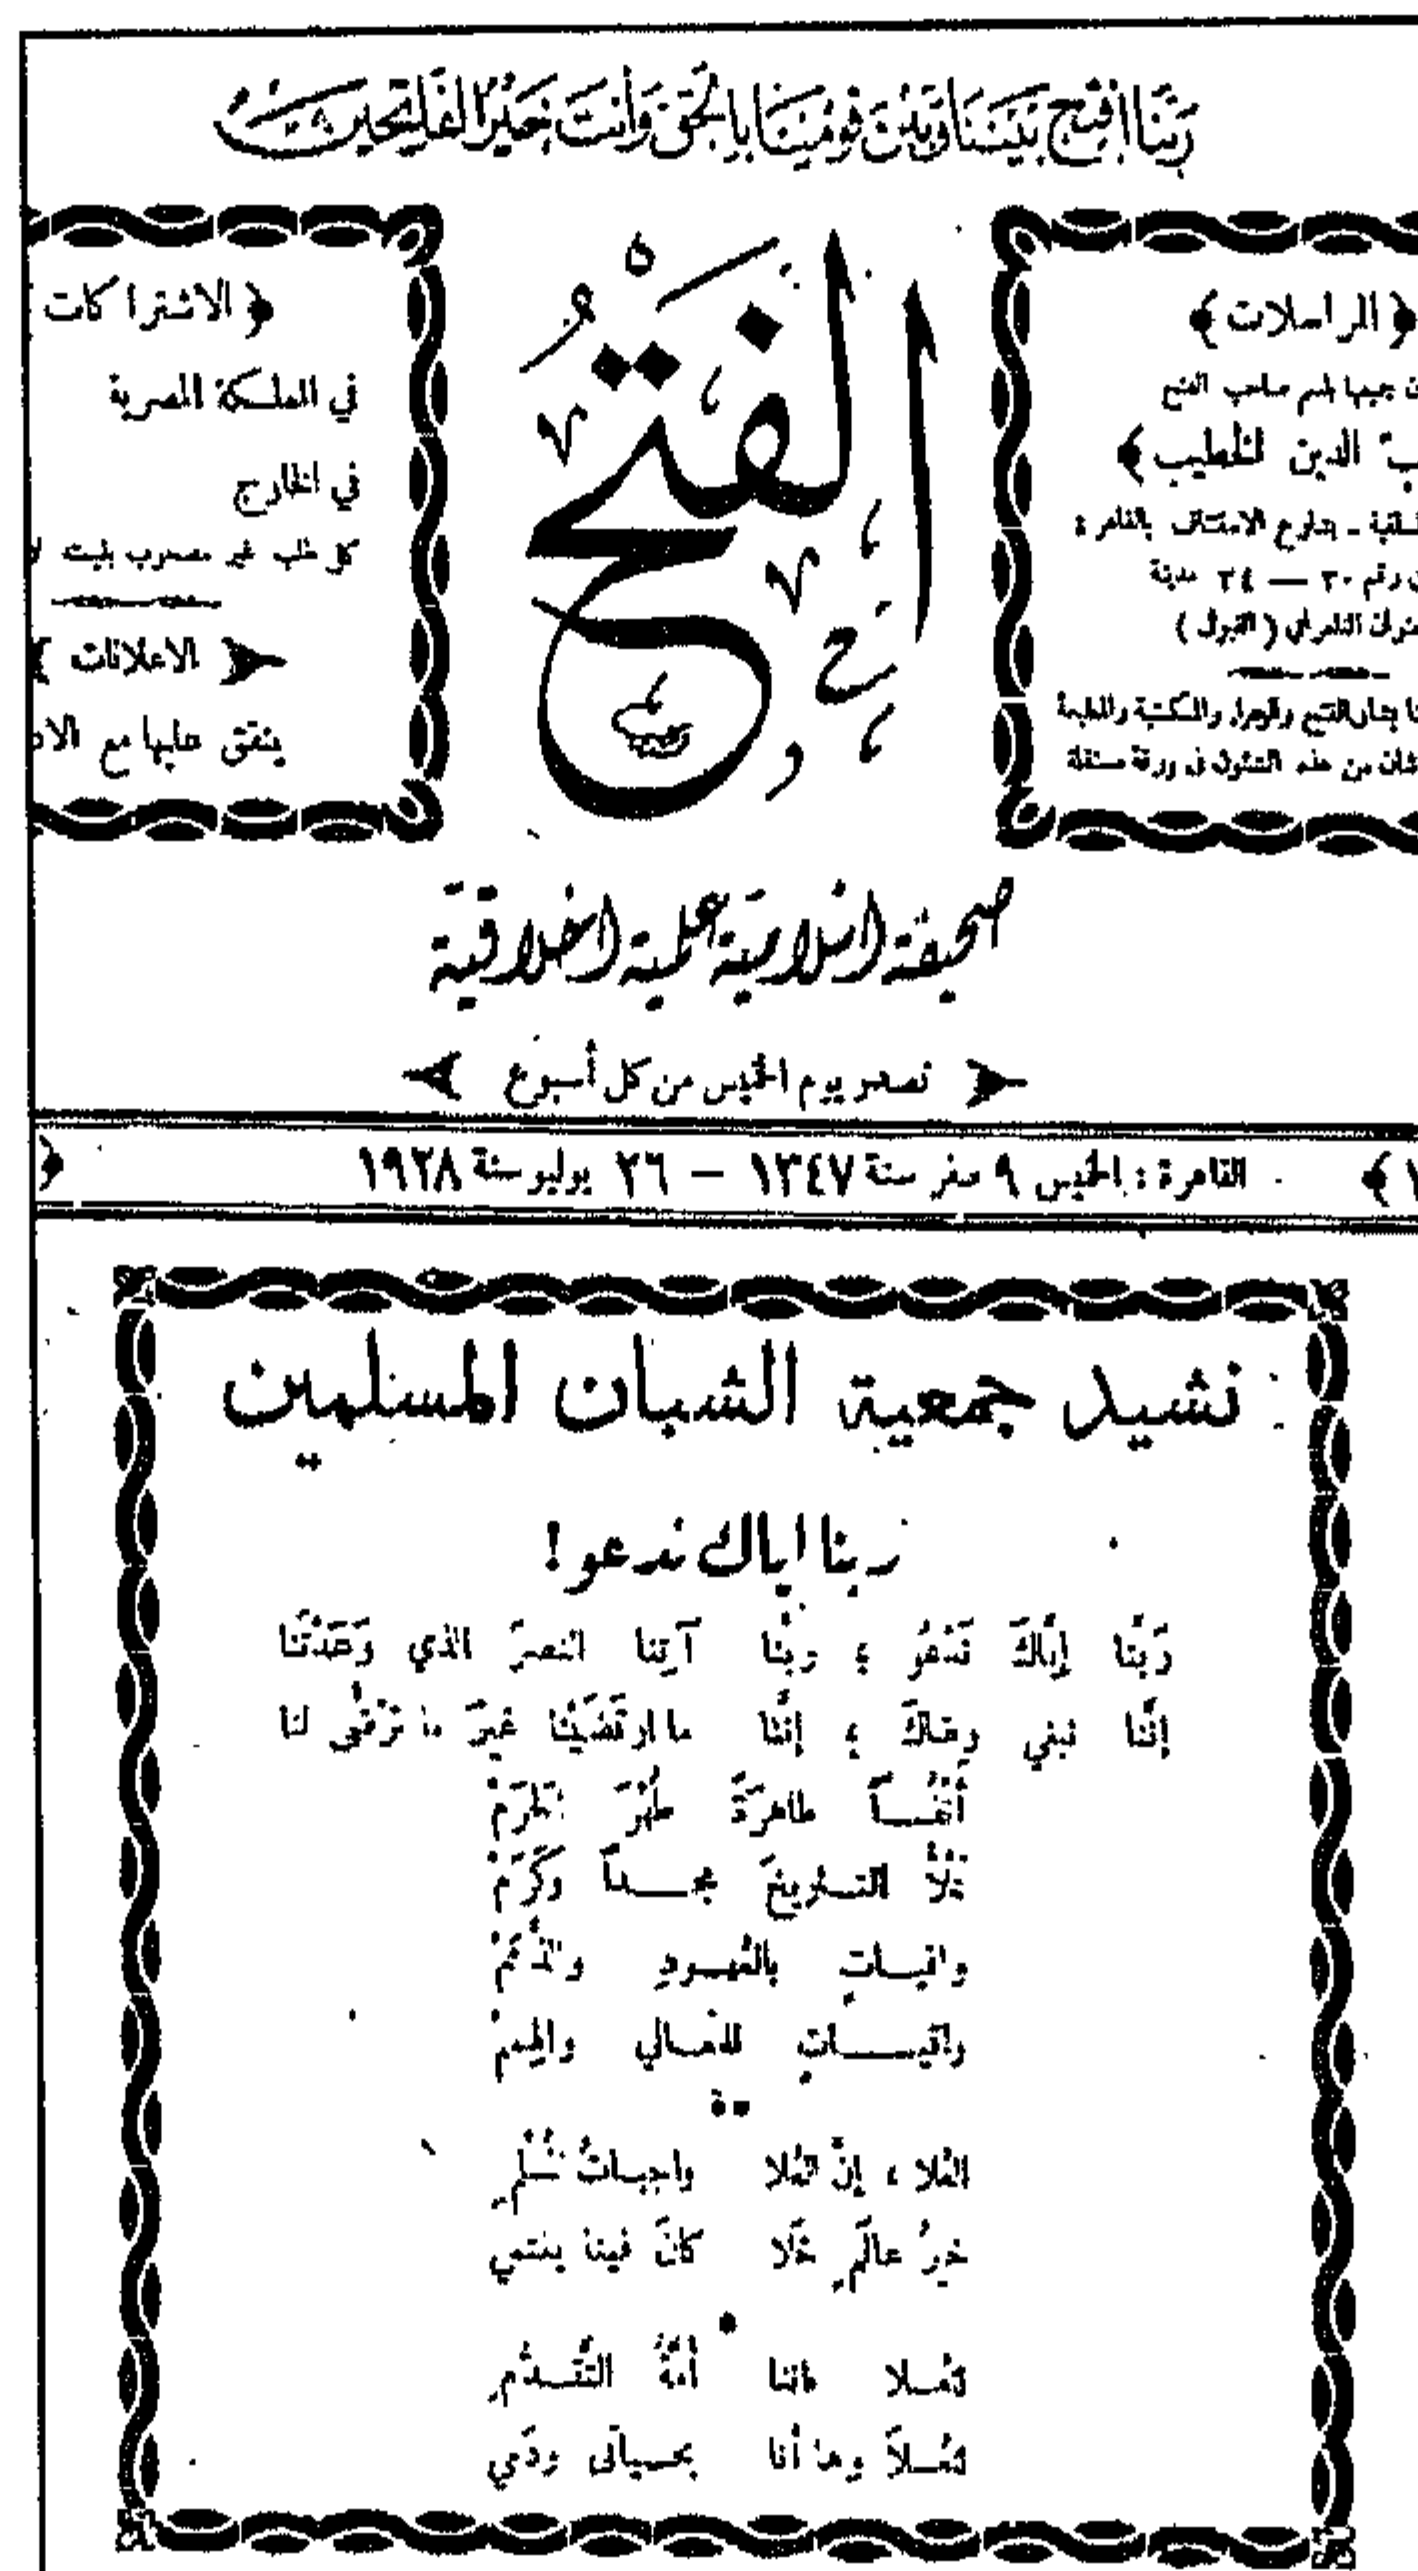 ربنا افتح بيننا وبين قومنا بالحق وأنت خير الفاتحين
﴿ المراسلات ﴾
جميعها باسم صاحب الفتح
الدين الخطيب ﴾
بشارع الاستئناف بالقاهرة
رقم ٣٠ — ٢٤ مدينة
التلغرافي (الفتح)
من هذه الشئون في ورقة مستقلة
الفتح
﴿ الاشتراكات
في المملكة المصرية
في الخارج
كل طلب غير مصحوب
الاعلانات
يتفق عليها مع
صحيفة اسلامية علمية اخلاقية
تصدر يوم الخميس من كل أسبوع
القاهرة : الخميس ٩ صفر سنة ١٣٤٧ — ٢٦ يوليو سنة ١٩٢٨
نشيد جمعية الشبان المسلمين
ربنا اياك ندعو !
رَبَّنا إيَّاكَ نَدعُو ؛ ربَّنا آتِنا النصرَ الذي وَعَدْتَنا
إنَّنا نبغي رضاكَ ؛ إنَّنا ما ارتَضَيْنا غيرَ ما تَرْضى لنا
أنفُسـاً طاهرَةً طُهْرَ الحرَمْ
تملأُ التـاريخَ مجــداً وكَرَمْ
وافيـاتٍ بالعُهـودِ والذِّمَمْ
راقيــاتٍ للمعـالي والهِمَمْ
العُلا ، إنَّ العُلا واجبـاتُ المُسْلِمِ
خيرُ عالَمٍ خَلا كانَ فينا ينتمي
للعُـلا فإننا أُمَّةُ التَّقَـدُّمِ
للعُـلا وها أنا بحـياتى ودَمي